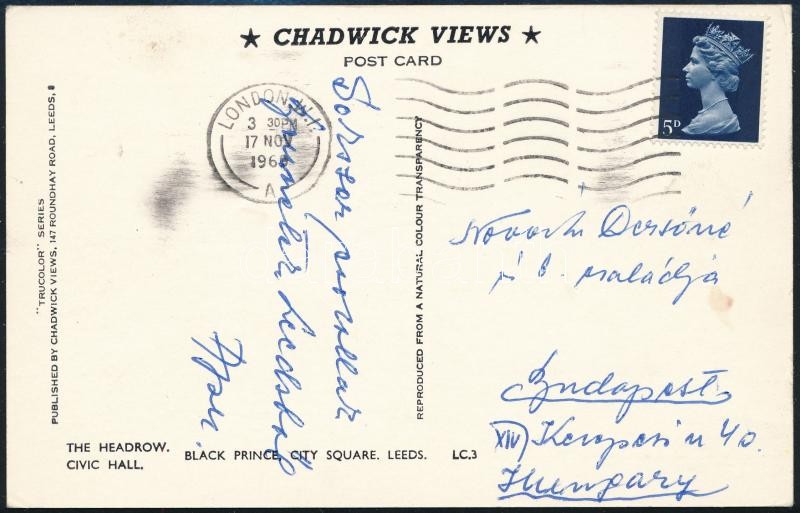 ★ CHADWICK VIEWS ★
POST CARD
LONDON W.1
3 30PM
17 NOV
196
A
5D
"TRUCOLOR" SERIES
PUBLISHED BY CHADWICK VIEWS, 147 ROUNDHAY ROAD, LEEDS, 8
Sokszor
Leedsből
REPRODUCED FROM A NATURAL COLOUR TRANSPARENCY
Dezsőné
és b. családja
Budapest
XIV Kerepesi u 40.
Hungary
THE HEADROW.
CIVIC HALL.
BLACK PRINCE, CITY SQUARE. LEEDS.
LC.3